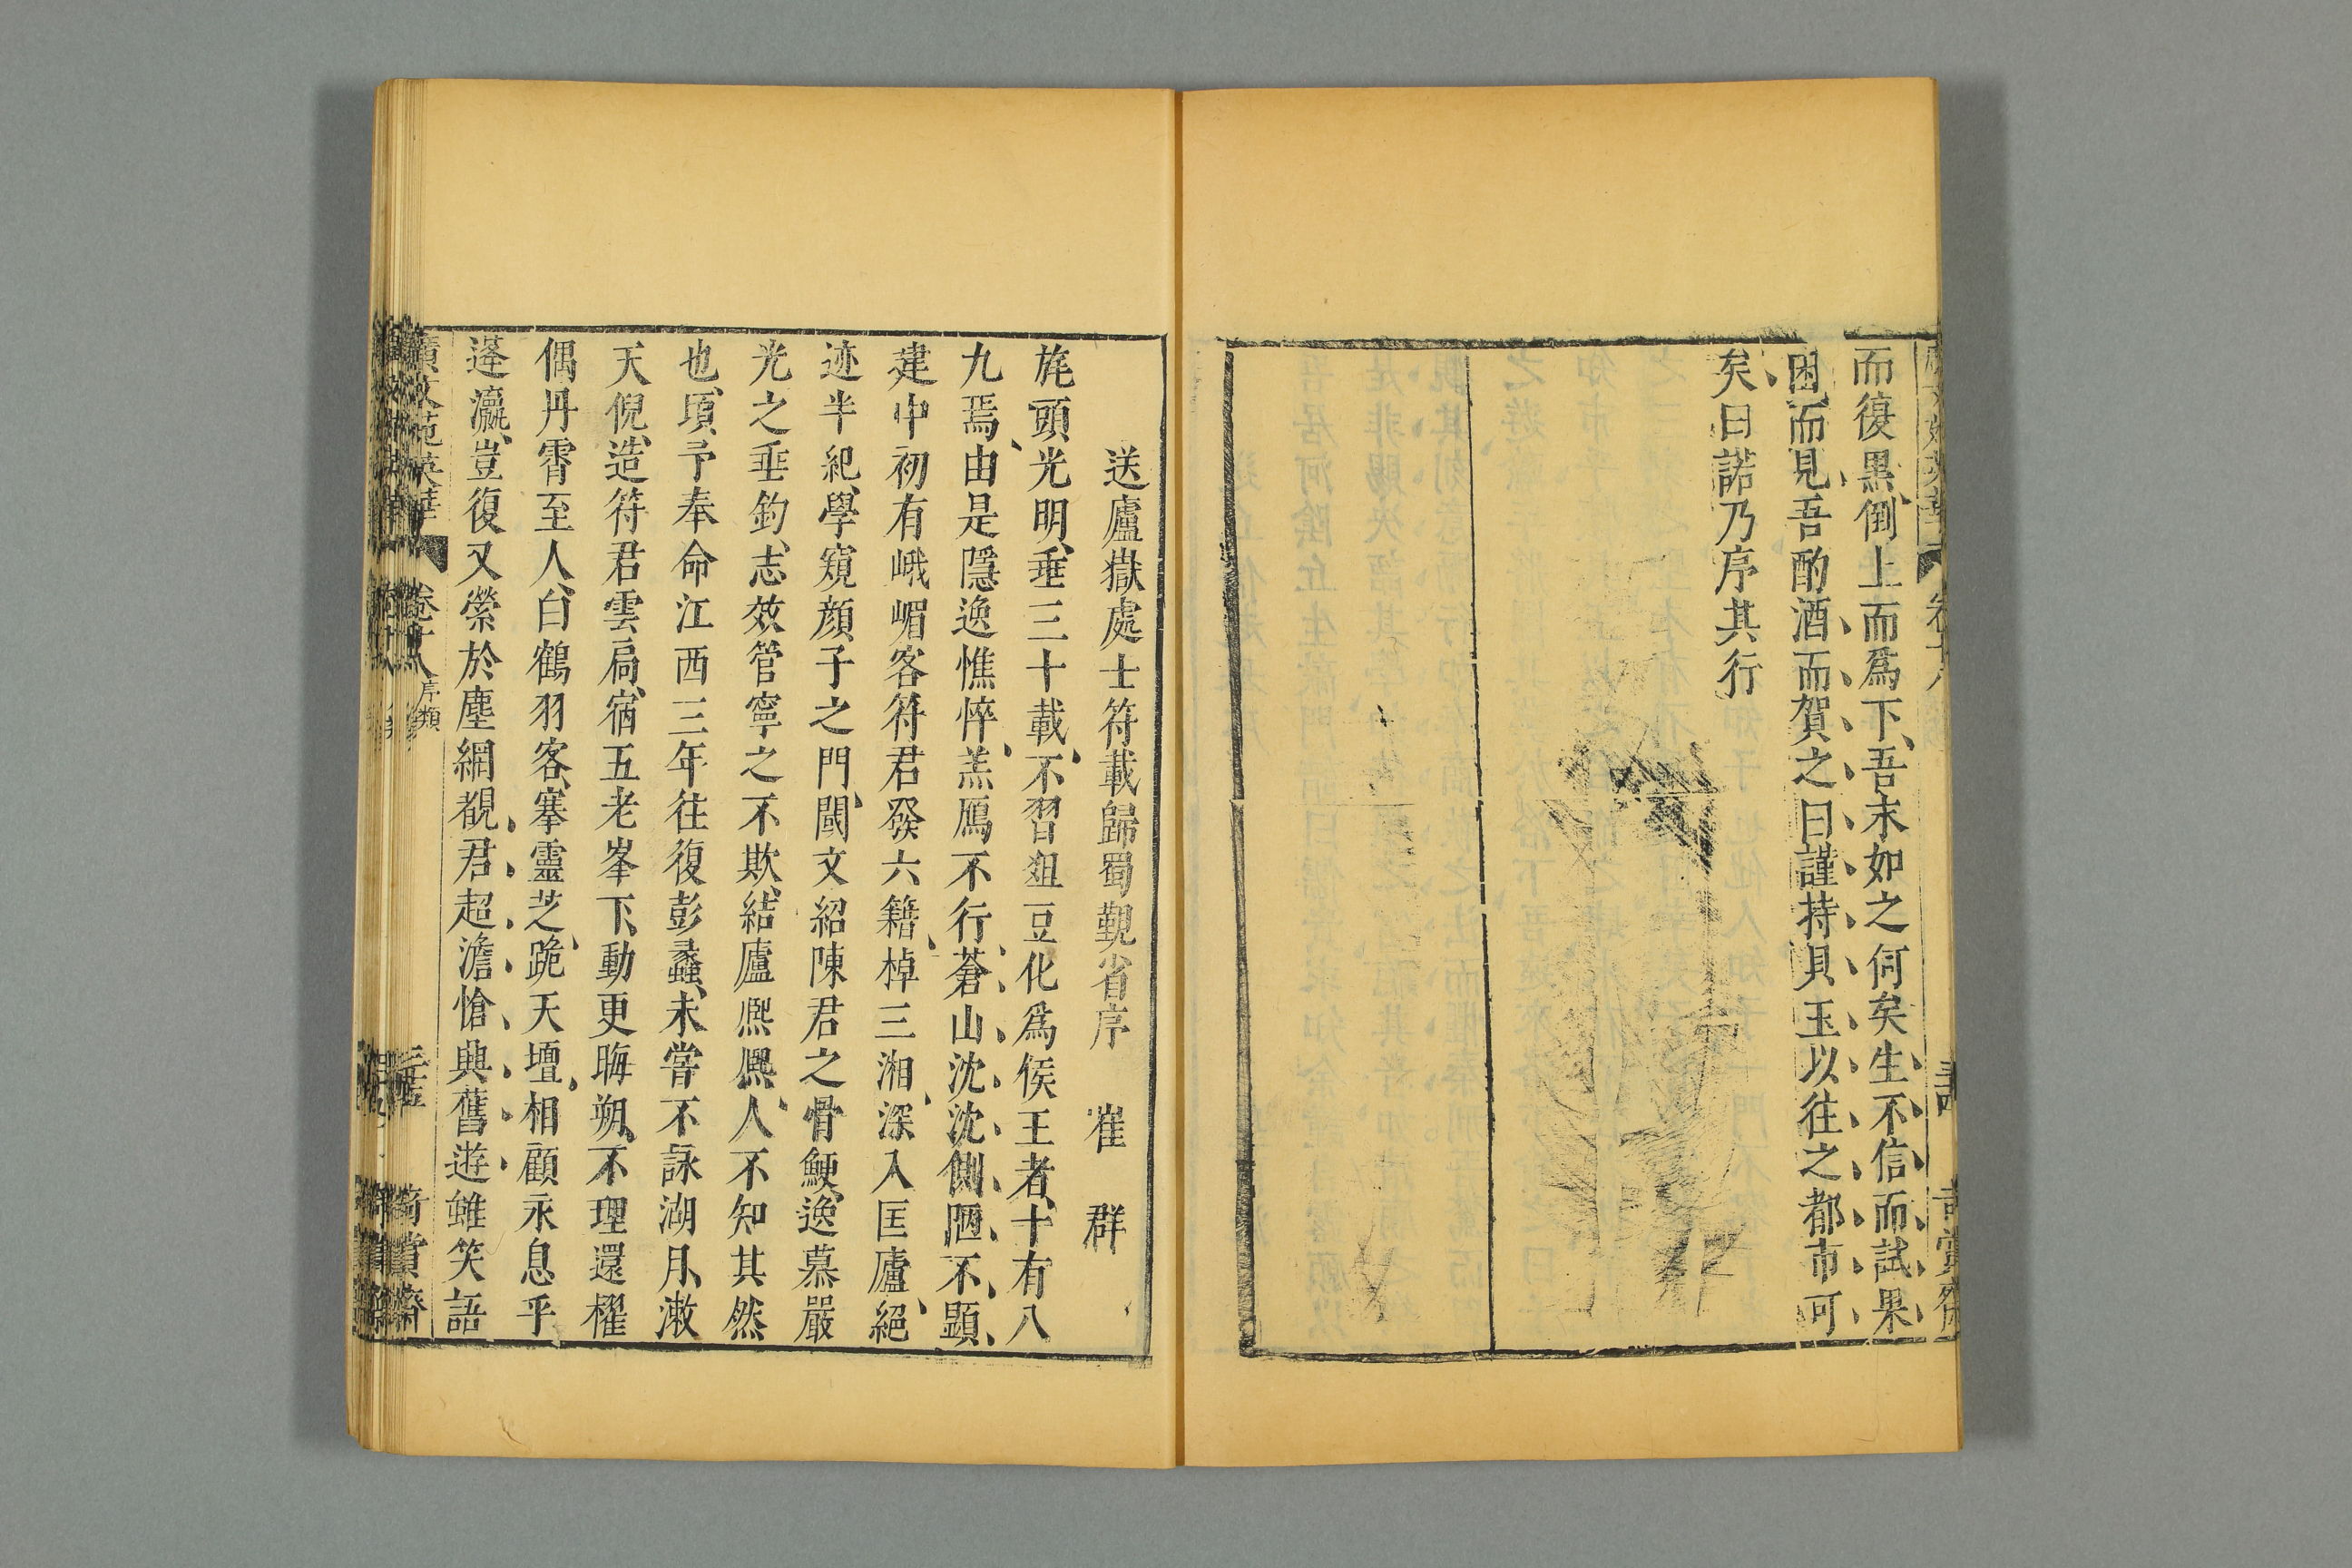 而復黒倒上而爲下吾末如之何矣生不信而試果
困而見吾酌酒而賀之曰謹持貝玉以往之都市可
矣曰諾乃序其行
送廬嶽處士符載歸蜀覲省序 崔群
旄頭光明垂三十載不習俎豆化爲侯王者十有八
九焉由是隱逸憔悴羔鴈不行蒼山沈沈側陋不顕
建中初有峨嵋客符君發六籍棹三湘深入匡廬絕
迹半紀學窺顔子之門閫文紹陳君之骨鯁逸慕嚴
光之垂釣志效管寧之不欺結廬熈熈人不知其然
也頃予奉命江西三年往復彭蠡未嘗不詠湖月漱
天倪造符君雲扃宿五老峯下動更晦朔不理還櫂
偶丹霄至人白鶴羽客搴靈芝跪天壇相顧永息乎
蓬瀛豈復又縈於塵網覩君超澹愴與舊遊雖笑語
廣文苑英華 卷十八 序類 奇賞齋